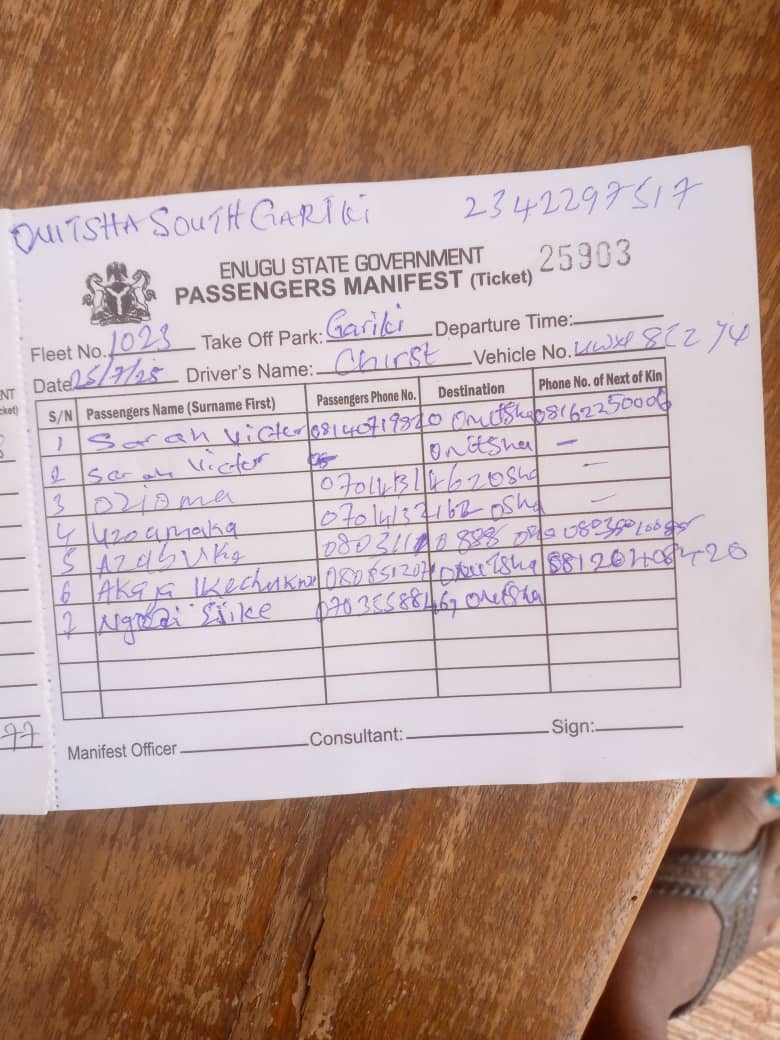 ONITSHA SOUTH GARIKI 2342297517
ENUGU STATE GOVERNMENT 25903
PASSENGERS MANIFEST (Ticket)
Fleet No. 1023 Take Off Park: Gariki Departure Time:
Date 25/7/25 Driver's Name: Chirst Vehicle No.
S/N Passengers Name (Surname First) Passengers Phone No. Destination Phone No. of Next of Kin
1 Sarah Victor 08140719820 Onitsha 08162250006
2 Sarah Victor Onitsha -
3 Ozioma 07014314620 sha -
4 Uzoamaka 07014132162 osha -
5 Azubuko
6 Akaja Ikechukwu Onitsha
7 Ngozi Ejike 07035588467 Onitsha
Manifest Officer Consultant: Sign:
NT
cket)
77